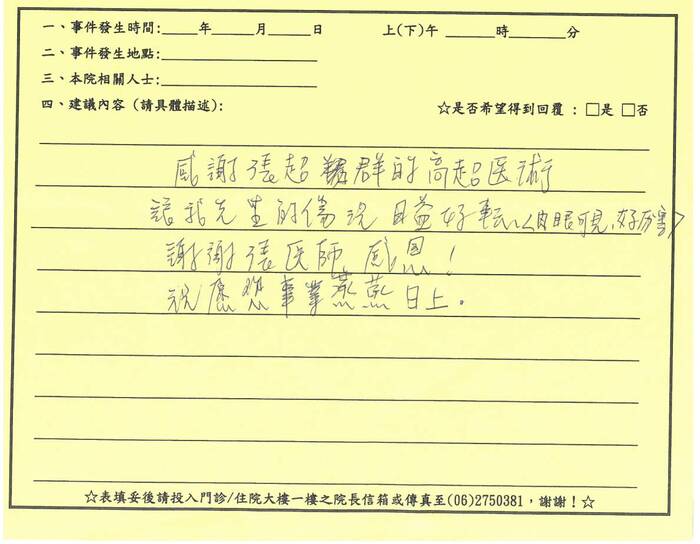 一、事件發生時間:_____年_____月_____日 上(下)午 _____時_____分
二、事件發生地點:
三、本院相關人士:
四、建議內容（請具體描述）: ☆是否希望得到回覆：□是 □否
感謝張超群的高超医術
讓我先生的傷況日益好転以肉眼可見,好厉害
謝謝張医師 感恩！
祝愿您事業蒸蒸日上。
☆表填妥後請投入門診/住院大樓一樓之院長信箱或傳真至(06)2750381，謝謝！☆